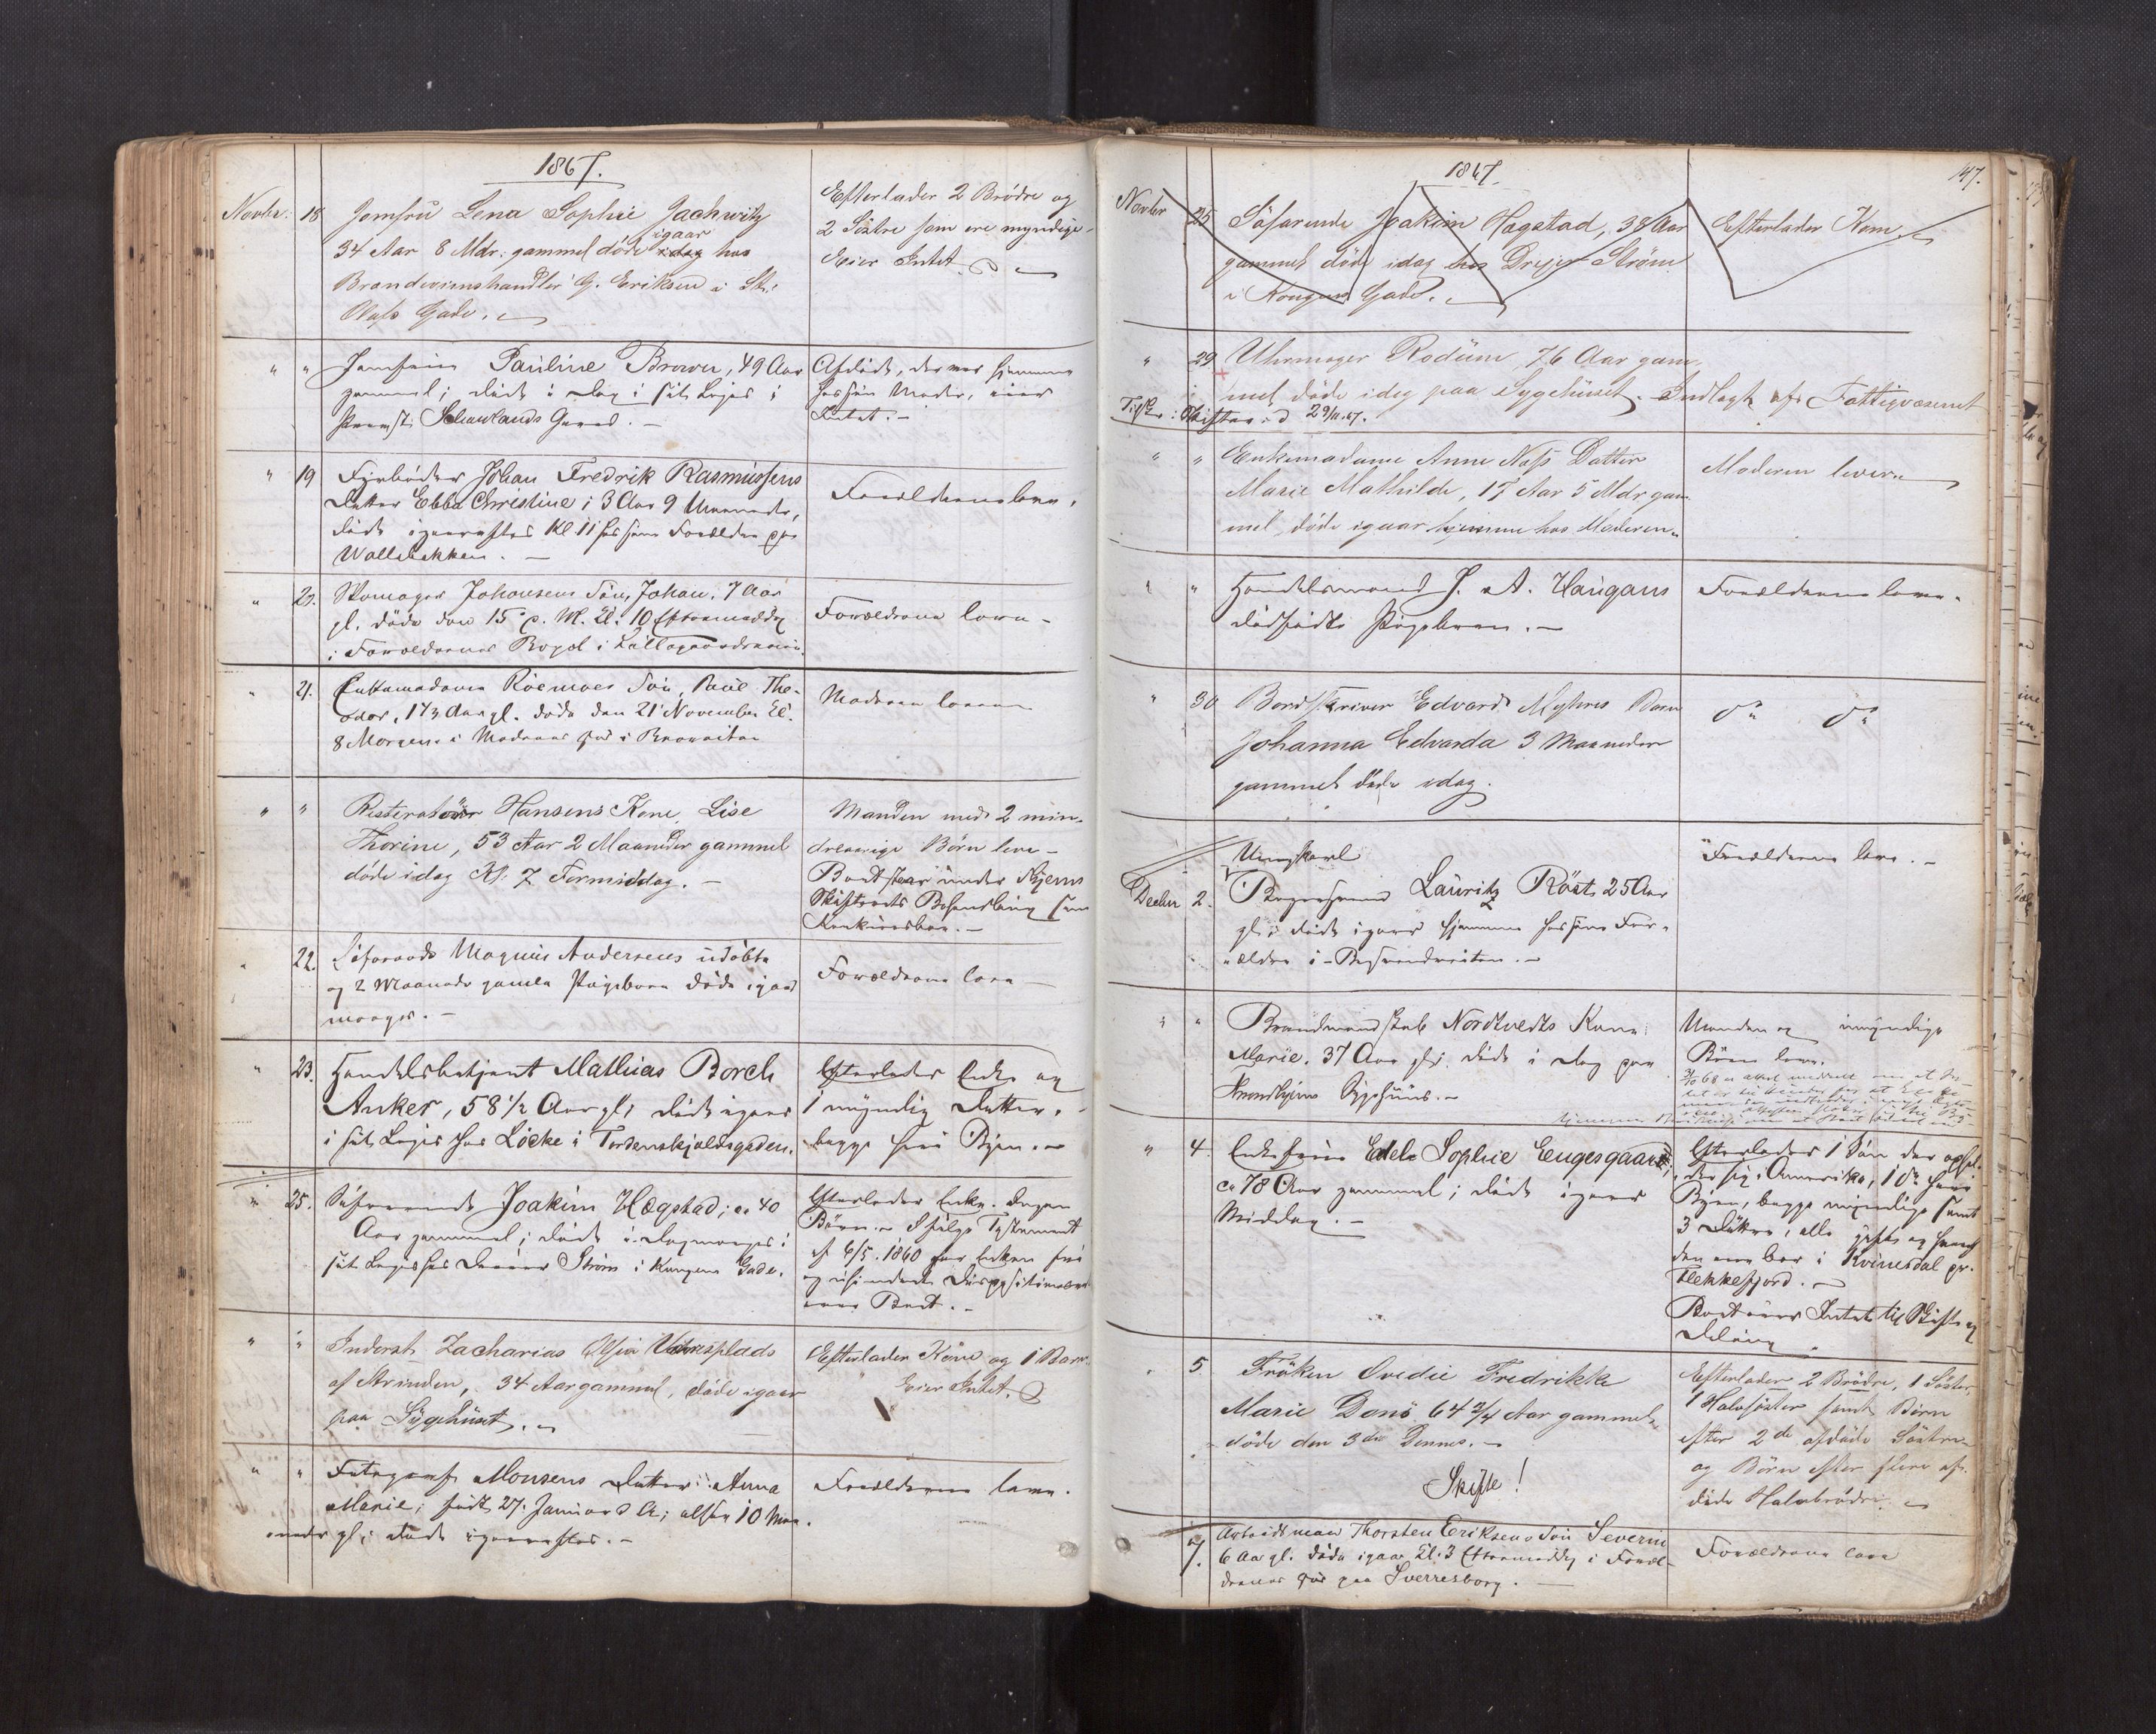 1867.
Novbr: 18 Jomfru Lena Sophie Jachwitz
34 Aar 8 Mdr: gammel döde idag igaar hos
Brændeviinshandler G. Eriksen i St:
Olafs Gade.
Efterlader 2 Brödre og
2 Söstre som ere myndige
Eier Intet
" " Jomfrue Pauline Brower, 49 Aar
gammel; död i Dag i sit Logis i
Schawlands Gaard.
Afdöde, der var hjemme
hos sin Moder, eier
Intet.
" 19 Fyrböder Johan Fredrik Rasmussens
Datter Ebba Christine; 3 Aar 9 Maaneder,
död igaaraftes Kl. 11 hos sine Forældre paa
Wollebakken.
Forældrene leve.
" 20. Skomager Johansens Sön, Johan, 7 Aar
gl. döde den 15 d. M. Kl. 10 Eftermiddag
i Forældrenes Bopæl i
Forældrene leve
" 21. Enkemadame Röemoes Sön, Paul The-
odor, 17 3/4 Aar gl. döde den 21 November Kl.
8 Morgen i Moderens Huus i
Moderen lever
" " Restauratör Hansens Kone, Lise
Thorine, 53 Aar 2 Maaneder gammel
döde idag Kl. 7 Formiddag.
Manden med 2 min-
dreaarige Börn leve
Boet staar under Byens
Skifterets Behandling som
Konkursbo.
" 22. Söfarende Magnus Andersens udöbte
og 2 Maaneder gamle Pigebarn döde igaar
morges.
Forældrene leve
" 23. Handelsbetjent Mathias Borch
Anker, 58 1/2 Aar gl; död igaar
i sit Logis hos Löcke i Tordenskjoldsgaden.
Efterlader Enke og
1 myndig Datter,
begge her i Byen.
" 25. Söfarende Joakim Hægstad; ca 40
Aar gammel; död i Dag morges i
sit Logis hos Dreier Ström i Kongens Gade.
Efterlader Enke. Ingen
Börn. Ifölge Testament
af 6/5. 1860 har Enken fri
og uhindret Dispositionsret
over Boet.
" " Inderst Zacharias Olsen Vatnesplads
af Strinden, 34 Aar gammel, döde igaar
paa Sygehuset.
Efterlader Kone og 1 Barn
Eier Intet.
" " Fotograf Monsens Datter: Anna
Marie; född 27. Januar d. A; altsaa 10 Maa-
neder gl; död igaaraftes.
Forældrene leve.
1867.
147.
Novbr 25 Söfarende Joakim Hagstad, 38 Aar
gammel döde idag hos Drejer Ström
i Kongens Gade.
Efterlader Kone
" 29 Uhrmager Rodüm, 76 Aar gam-
mel döde idag paa Sygehuset. Indlagt af Fattigvæsenet
Skifter. d 29/11.67.
" " Enkemadame Anne Næss Datter
Marie Mathilde, 17 Aar 5 Mdr gam-
mel döde igaar hjemme hos Moderen.
Moderen lever
" " Handelsmand J. A. Haugans
dödfödte Pigebarn.
Forældrene leve.
" 30 Bordskriver Edvard Myhres Barn
Johanna Edvarda 3 Maaneder
gammel döde idag.
do do
Decbr 2. Ungkarl
Lauritz Röst 25 Aar
gl; död igaar hjemme hos sine For-
ældre i
Forældrene leve.
" " Brandmandskab Nordtvedts Kone
Marie. 37 Aar gl; död i Dag paa
Trondhjems Sygehuus.
Manden og umyndige
Börn leve.
" 4. Enkefrue Edele Sophie Engesgaard;
ca 78 Aar gammel; död igaar
Middag.
Efterlader 1 Sön der ophol-
der sig i Amerika, 1 do her i
Byen, begge myndige samt
3 Döttre, alle gifte og hvoraf
den ene bor i Kvinesdal pr.
Flekkefjord.
Boet eier Intet til Skifte og
Deling
" 5 Fröken Ovedie Fredrikke
Marie Dons 64 3/4 Aar gammel
döde den 3die Dennes.
Skifte!
Efterlader 2 Brödre, 1 Söster
1 Halvsöster samt Börn
efter 2de afdöde Söstre
og Börn efter flere af-
döde Halvbrödre
" 7. Arbeidsmand Thorsten Eriksens Sön Severin
6 Aar gl. döde igaar Kl. 3 Eftermiddag i Foræl-
drenes Huus paa Sverresborg.
Forældrene leve